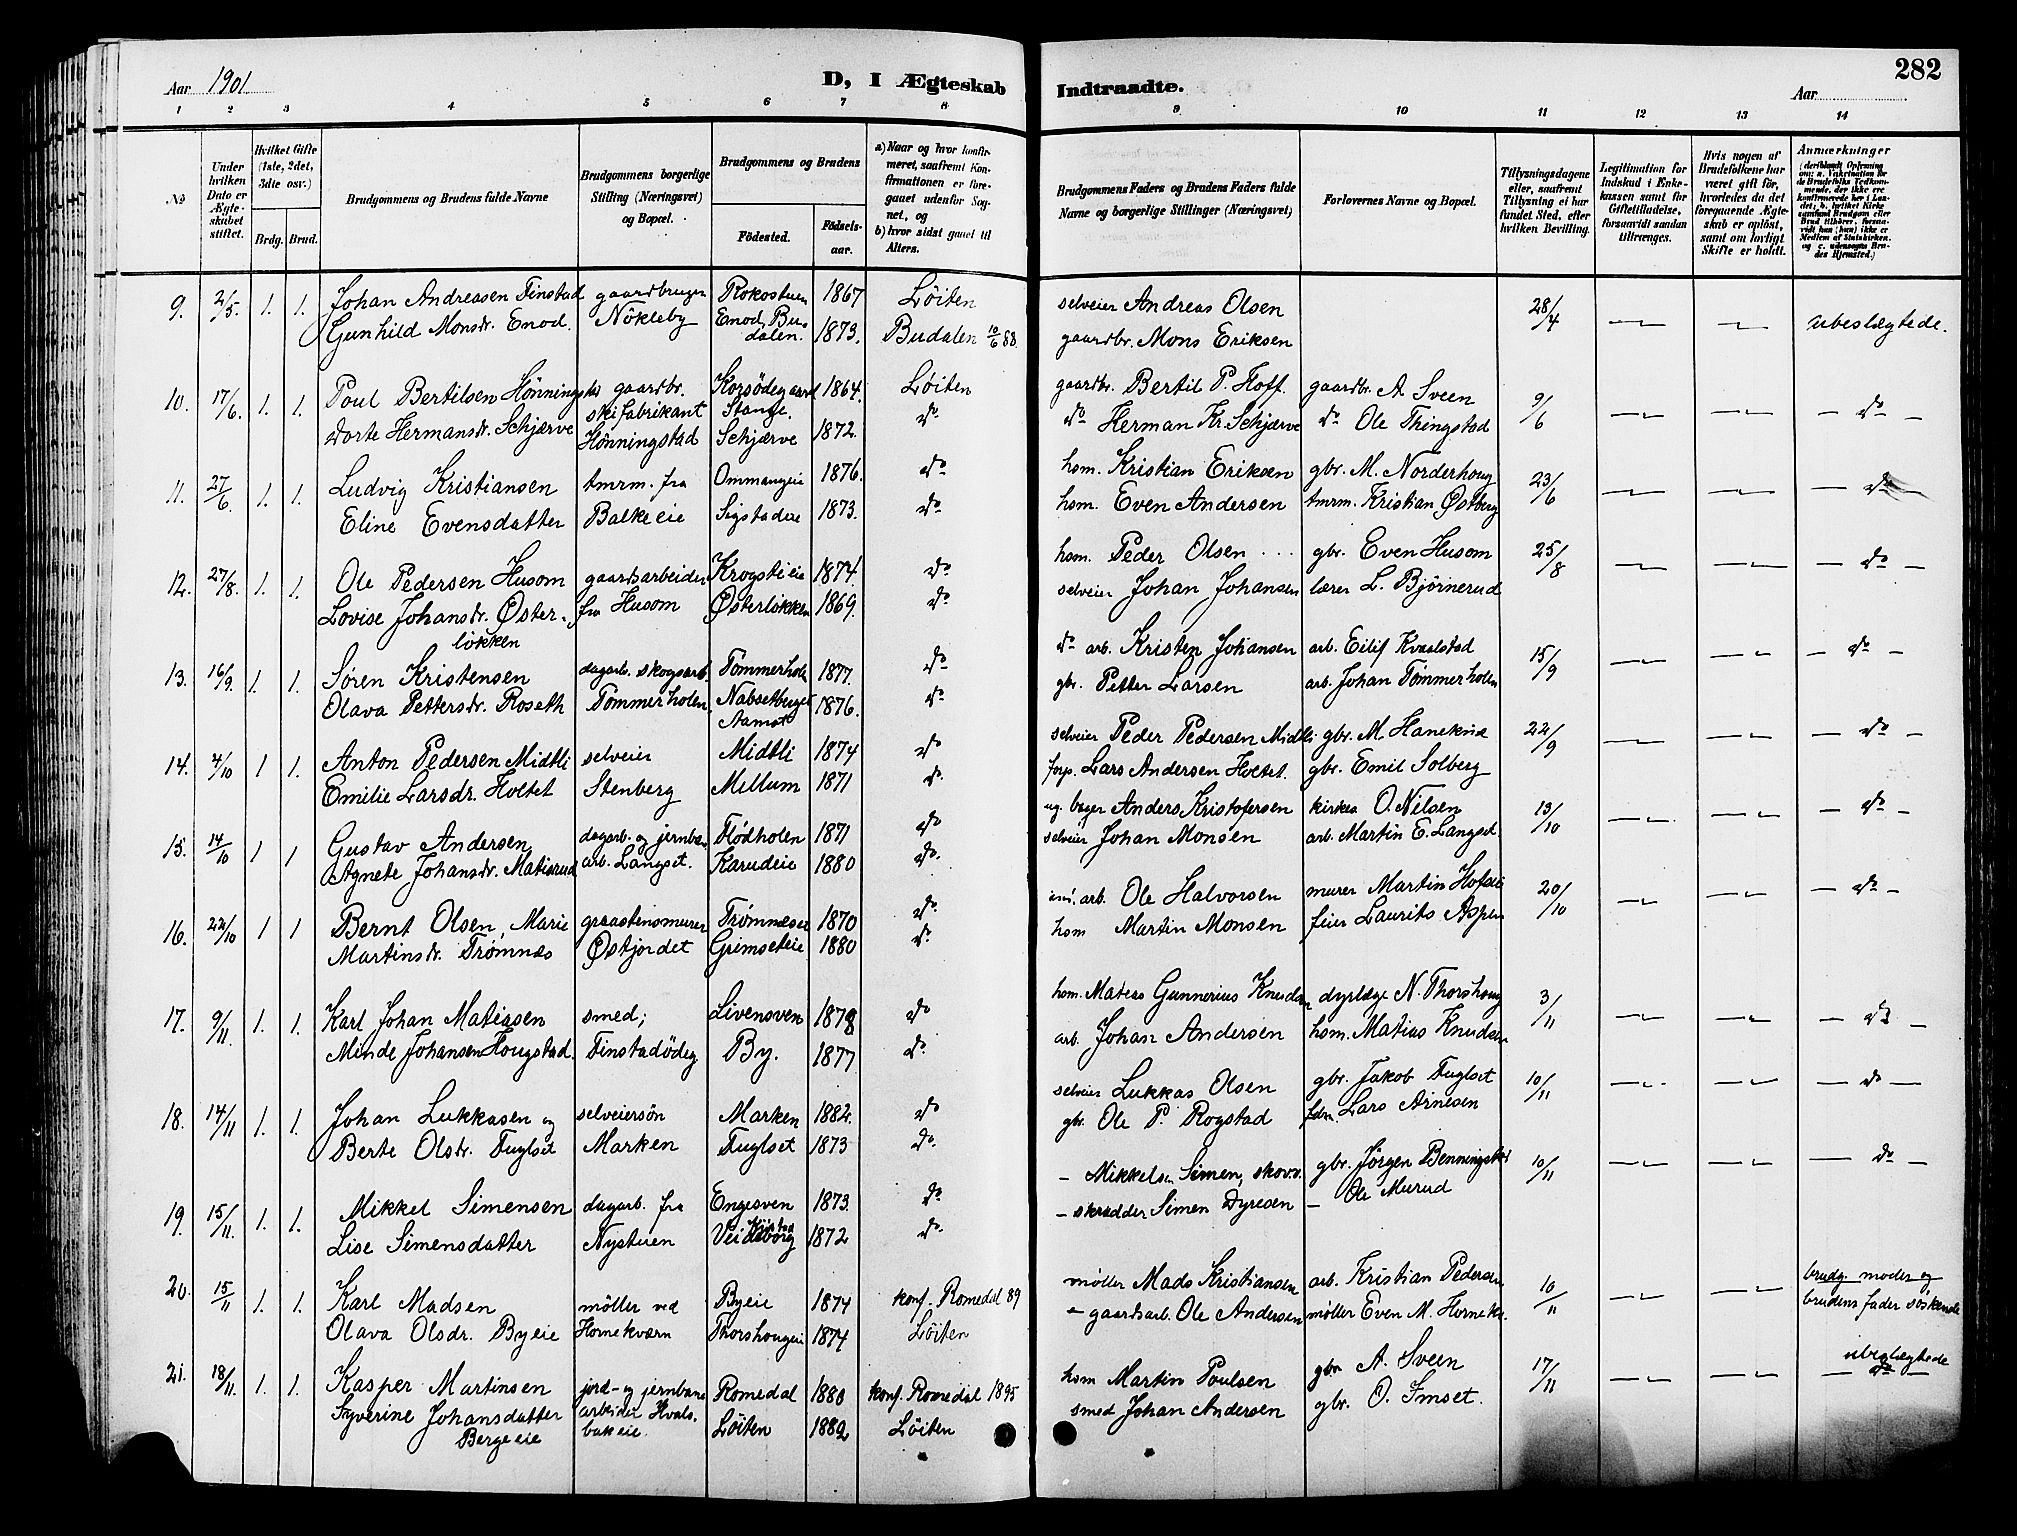 Aar 1901
D, I Ægteskab
Indtraadte.
282
Aar
1 2 3 4 5 6 7 8 9 10 11 12 13 14
No
Under hvilken Dato er Ægteskabet stiftet.
Hvilket Gifte (1ste, 2det, 3die osv.)
Brdg. Brud.
Brudgommens og Brudens fulde Navne
Brudgommens borgerlige Stilling (Næringsvei) og Bopæl.
Brudgommens og Brudens
Fødested. Fødselsaar.
a) Naar og hvor konfirmeret, saafremt Konfirmationen er foregaaet udenfor Sognet, og
b) hvor sidst gaaet til Alters.
Brudgommens Faders og Brudens Faders fulde Navne og borgerlige Stillinger (Næringsvei)
Forlovernes Navne og Bopæl.
Tillysningsdagene eller, saafremt Tillysning ei har fundet Sted, efter hvilken Bevilling.
Legitimation for Indskud i Enkekassen samt for Giftetilladelse, forsaavidt saadan tiltrænges.
Hvis nogen af Brudefolkene har været gift før, hvorledes da det foregaaende Ægteskab er opløst, samt om lovligt Skifte er holdt.
Anmærkninger
9. 2/5. 1. 1. Johan Andreasen Finstad gaardbruger Rokostuen 1867 Løiten selveier Andreas Olsen 28/4 ubeslægtede.
Gunhild Monsdr. Enod. Nökleby Enod, Budalen. 1873. Budalen 10/6 88. gaardbr. Mons Eriksen
10. 17/6. 1. 1. Poul Bertilsen Hønningstad gaardbr. Korsødegaard 1864. Løiten gaardbr. Bertil P. Hoff. gaardbr. A Sveen 9/6 do
skifabrikant Stange.
Dorte Hermansdr. Schjærve Hønningstad Schjærve 1872. do do Herman Kr. Schjærve do Ole Thingstad
11. 27/6. 1. 1. Ludvig Kristiansen tmrm. fra Ommangeie 1876. do hsm. Kristian Eriksen gbr. M. Norderhoug 23/6 do
Eline Evensdatter Balkeeie Sigstadeie 1873. do hsm. Even Andersen tmrm. Kristian Østberg
12. 27/8. 1. 1. Ole Pedersen Husom gaardsarbeider Krogstieie 1874. do hsm. Peder Olsen gbr. Even Husom 25/8 do
Lovise Johansdr. Øster- fra Husom Østerløkken 1869. do selveier Johan Johansen lærer L. Bjørnerud
løkken
13. 16/9. 1. 1. Søren Kristensen dagarb. skogsarb. Tømmerholen 1877. do do arb. Kristen Johansen arb. Eilif Kvaalstad 15/9 do
Olava Pettersdr. Roseth Tømmerholen Nabsetberget 1876. do gbr. Petter Larsen arb. Johan Tømmerholen
Aamot
14. 4/10 1 1. Anton Pedersen Midtli selveier Midtli 1874 do selveier Peder Pedersen Midtli gbr. M. Hanekne 22/9 do
Emilie Larsdr. Holtet Stenberg Mellum 1871 do. forp. Lars Andersen Holtet. gbr. Emil Solberg
15. 14/10 1 1 Gustav Andersen dagarb. og jernban. Flödholen 1871 do ug. bager Anders Kristofersen kirkes. O. Nilsen 13/10 do
Agnete Johansdr. Matisrud arb. Langset. Karudeie 1880 do. selveier Johan Monsen arb. Martin E. Langset.
16. 22/10 1 1 Bernt Olsen, Marie graastensmurer Trømnæseie 1870 do. arb. Ole Halvorsen murer Martin Hofseie 20/10 do
Martinsdr. Trømnæs Østjordet Grimseteie 1880 do. hsm Martin Monsen feier Laurits Aspen
17. 9/11. 1. 1. Karl Johan Matiasen smed; Livensven 1878 do hsm. Matias Gunnerius Knudsen dyrlæge N. Thorshoug 3/11 do
Minde Johansen Hougstad. Finstadødeg By. 1877 do. arb. Johan Andersen hsm. Matias Knudsen
18. 14/11 1. 1. Johan Lukkasen og selveiersön Marken 1882. do selveier Lukkas Olsen gbr. Jakob Fuglset 10/11 do
Berte Olsdr. Fuglset Marken Fuglset 1873 do. gbr. Ole P. Rogstad fdm. Lars Arnesen
19. 15/11. 1. 1. Mikkel Simensen dagarb. fra Engesven 1873. do. – Mikkelsen Simen, skovv. gbr. Jörgen Benningstad 10/11 do
Lise Simensdatter Nystuen 1872 do. – skrædder Simen Dyresen – Ole Murud
20. 15/11 1. 1. Karl Madsen möller ved Byeie 1874 konf. Romedal 89 møller Mads Kristiansen arb. Kristian Pedersen 10/11 brudg. moder og
Olava Olsdr. Byeie Hornekværn Thorshougeie 1874 Løiten – gaardsarb. Ole Andersen møller Even M. Hornekv. brudens fader söskende
21. 18/11. 1. 1. Kasper Martinsen jord- og jernbane Romedal 1880 konf. Romedal 1895 hsm Martin Poulsen gbr A. Sveen 17/11 ubeslægtede do
Syverine Johansdatter arbeider Hvals- Løiten 1882 Løiten smed Johan Andersen gbr. O. Imset.
Bergeeie bakeie.